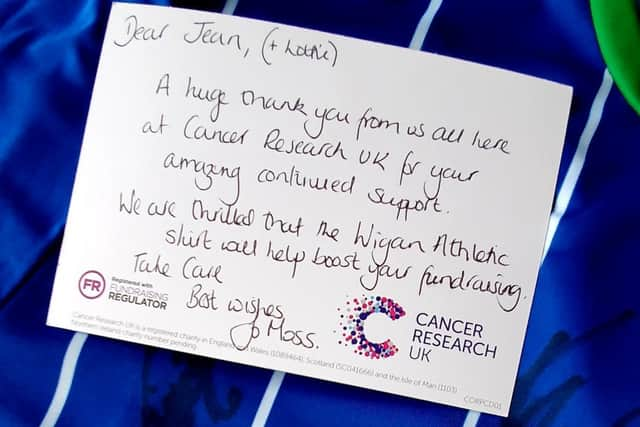 Dear Jean, (+ Lottie)
A huge thank you from us all here
at Cancer Research UK for your
amazing continued support.
We are thrilled that the Wigan Athletic
shirt will help boost your fundraising.
Take Care
Best wishes
Jo Moss.
FR
Registered with
FUNDRAISING
REGULATOR
CANCER
RESEARCH
UK
Cancer Research UK is a registered charity in England and Wales (1089464), Scotland (SC041666) and the Isle of Man (1103)
Northern Ireland charity number pending.
CORPCD01